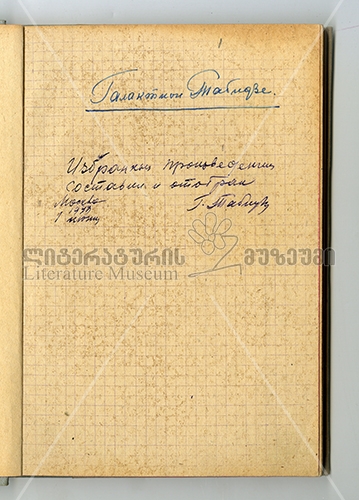 1
Галактион Табидзе.
Избранных произведений
составил и отобрал
Москва Г. Табидзе
1 июнь
ლიტერატურის მუზეუმი
Literature Museum